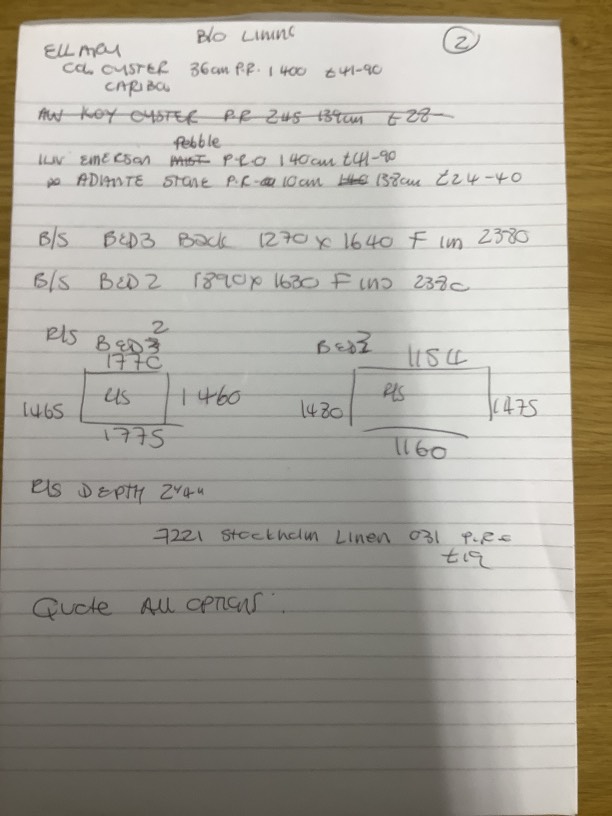 B/O LINING
2
ELL MARY
COL OYSTER 36cm P.R. 1400 £41-90
CARIBOU
AW KOY OYSTER P.R 245 139cm £28
Pebble
ILIV EMERSON MIST P.RO 140cm £41-90
ADIANTE STONE P.R 10cm 138cm £24-40
B/S BED3 BACK 1270 x 1640 F in 2380
B/S BED 2 1890 x 1630 F in 2380
R/S BED 2
1770
1465 R/S 1460
1775
BED 3
1154
1480 R/S 1475
1160
R/S DEPTH
7221 Stockholm Linen 031 P.R
£19
QUOTE ALL OPTIONS.